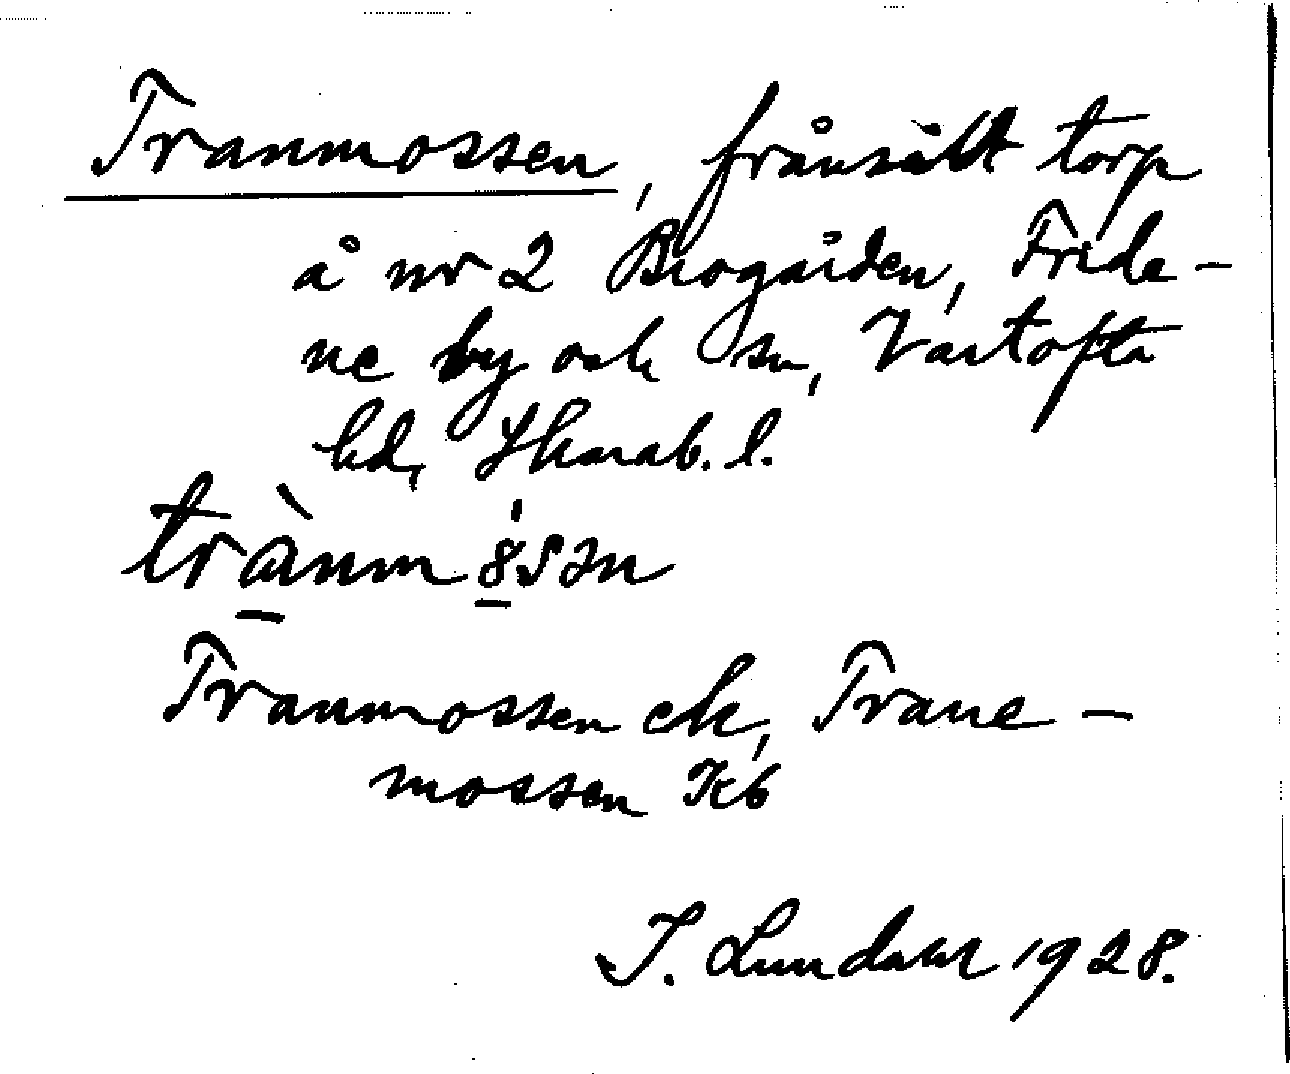 Tranmossen, frånsålt torp
å nr 2 Brogården, Fride-
ne by och sn, Vartofta
hd, Skarab. l.
Tranmossen ek, Trane-
mossen Kb
I. Lundahl 1928.